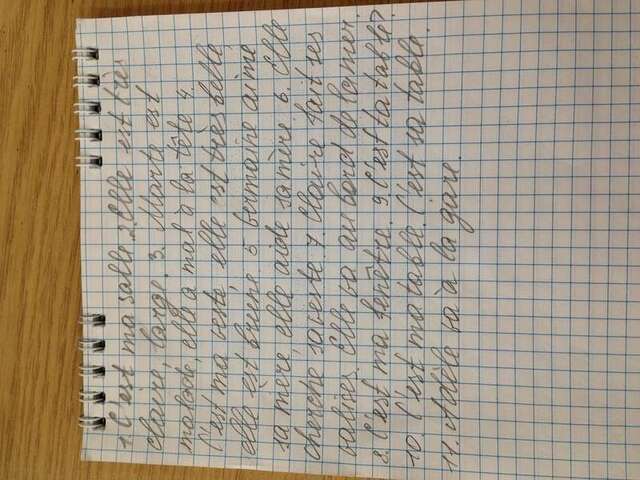 1. C'est ma salle. 2. Elle est très
claire, large. 3. Marte est
malade, elle a mal à la tête 4.
C'est ma veste, elle est très belle,
elle est brune. 5 Germaine aime
sa mère, elle aide sa mère. 6. Elle
cherche sa veste. 7. Claire fait ses
valises. Elle va au bord de la mer.
8. C'est ma fenêtre. 9. C'est ta table?
10. C'est ma table. C'est sa table.
11. Adèle va à la gare.